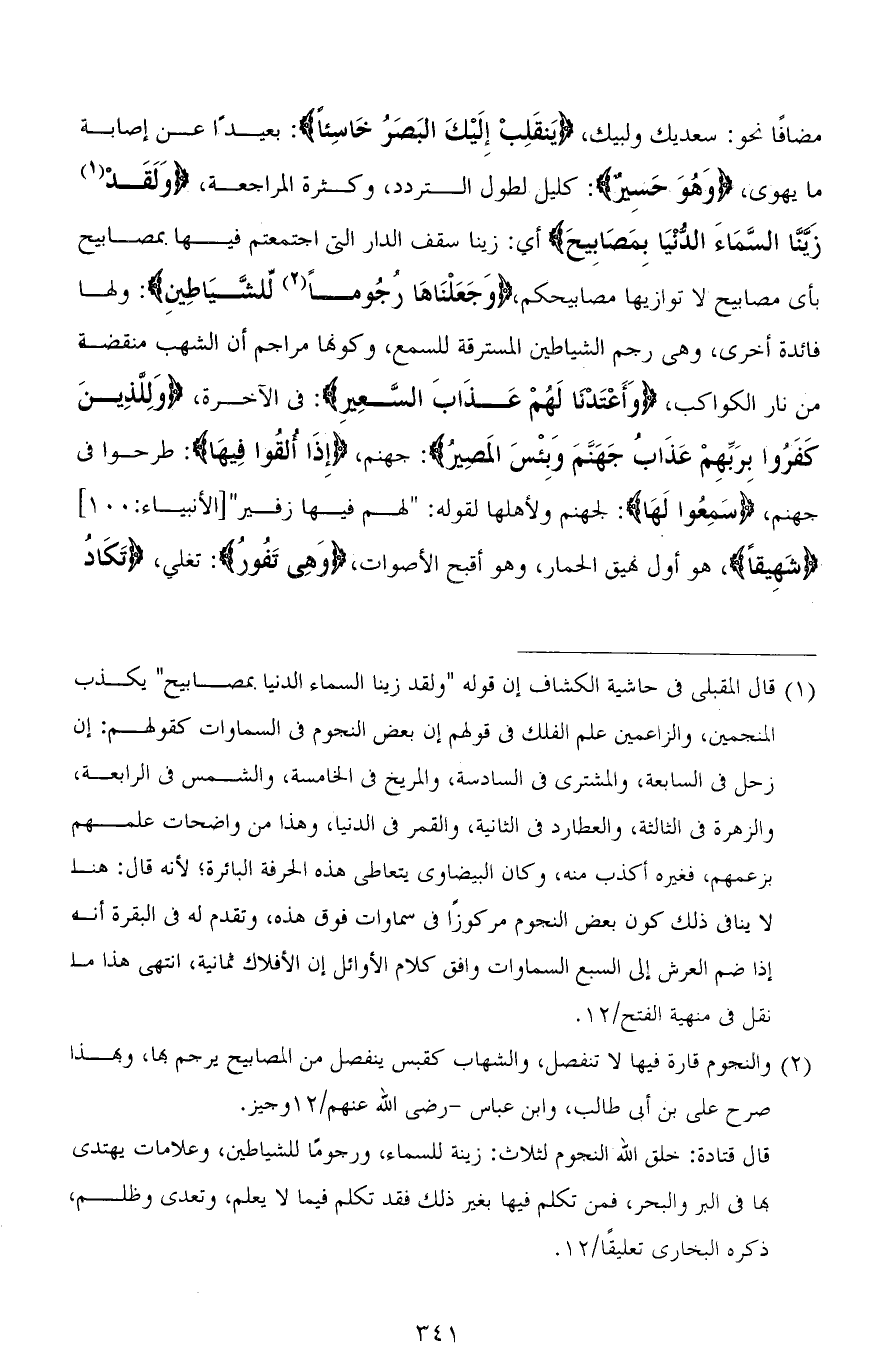 مضافًا نحو: سعديك ولبيك، ﴿يَنقَلِبْ إِلَيْكَ البَصَرُ خَاسِئاً﴾: بعيــدًا عــن إصابــة
ما يهوى، ﴿وَهُوَ حَسِيرٌ﴾: كليل لطول الــتردد، وكــثرة المراجعــة، ﴿وَلَقَــدْ(١)
زَيَّنَّا السَّمَاءَ الدُّنْيَا بِمَصَابِيحَ﴾ أي: زينا سقف الدار التى اجتمعتم فيــها بمصــابيح
بأى مصابيح لا توازيها مصابيحكم،﴿وَجَعَلْنَاهَا رُجُومــاً(٢) لِّلشَّــيَاطِينِ﴾: ولهــا
فائدة أخرى، وهى رجم الشياطين المسترقة للسمع، وكونها مراجم أن الشهب منقضــة
من نار الكواكب، ﴿وَأَعْتَدْنَا لَهُمْ عَــذَابَ السَّــعِيرِ﴾: فى الآخــرة، ﴿وَلِلَّذِيــنَ
كَفَرُوا بِرَبِّهِمْ عَذَابُ جَهَنَّمَ وَبِئْسَ المَصِيرُ﴾: جهنم، ﴿إِذَا أُلقُوا فِيهَا﴾: طرحــوا فى
جهنم، ﴿سَمِعُوا لَهَا﴾: لجهنم ولأهلها لقوله: "لهــم فيــها زفــير"[الأنبيــاء:١٠٠]
﴿شَهِيقاً﴾، هو أول نهيق الحمار، وهو أقبح الأصوات،﴿وَهِى تَفُورُ﴾: تغلي، ﴿تَكَادُ
(١) قال المقبلى فى حاشية الكشاف إن قوله "ولقد زينا السماء الدنيا بمصــابيح" يكــذب
المنجمين، والزاعمين علم الفلك فى قولهم إن بعض النجوم فى السماوات كقولهــم: إن
زحل فى السابعة، والمشترى فى السادسة، والمريخ فى الخامسة، والشــمس فى الرابعــة،
والزهرة فى الثالثة، والعطارد فى الثانية، والقمر فى الدنيا، وهذا من واضحات علمــهم
بزعمهم، فغيره أكذب منه، وكان البيضاوى يتعاطى هذه الحرفة البائرة؛ لأنه قال: هنــا
لا ينافى ذلك كون بعض النجوم مركوزًا فى سماوات فوق هذه، وتقدم له فى البقرة أنــه
إذا ضم العرش إلى السبع السماوات وافق كلام الأوائل إن الأفلاك ثمانية، انتهى هذا مــا
نقل فى منهية الفتح/١٢.
(٢) والنجوم قارة فيها لا تنفصل، والشهاب كقبس ينفصل من المصابيح يرجم بها، وبهــذا
صرح على بن أبى طالب، وابن عباس -رضى الله عنهم/١٢وجيز.
قال قتادة: خلق الله النجوم لثلاث: زينة للسماء، ورجومًا للشياطين، وعلامات يهتدى
بها فى البر والبحر، فمن تكلم فيها بغير ذلك فقد تكلم فيما لا يعلم، وتعدى وظلــم،
ذكره البخارى تعليقًا/١٢.
٣٤١